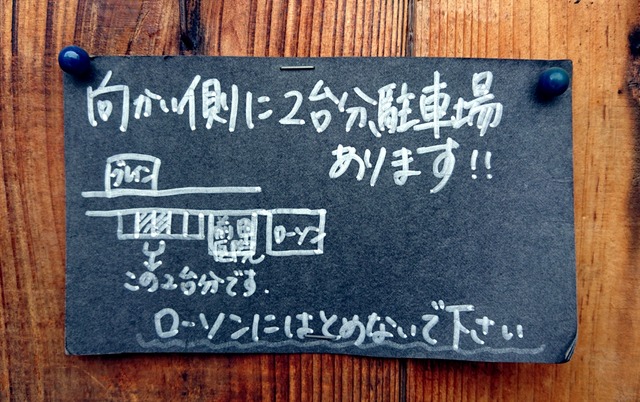 向かい側に2台分駐車場
あります!!
ローソン
この2台分です.
ローソンにはとめないで下さい